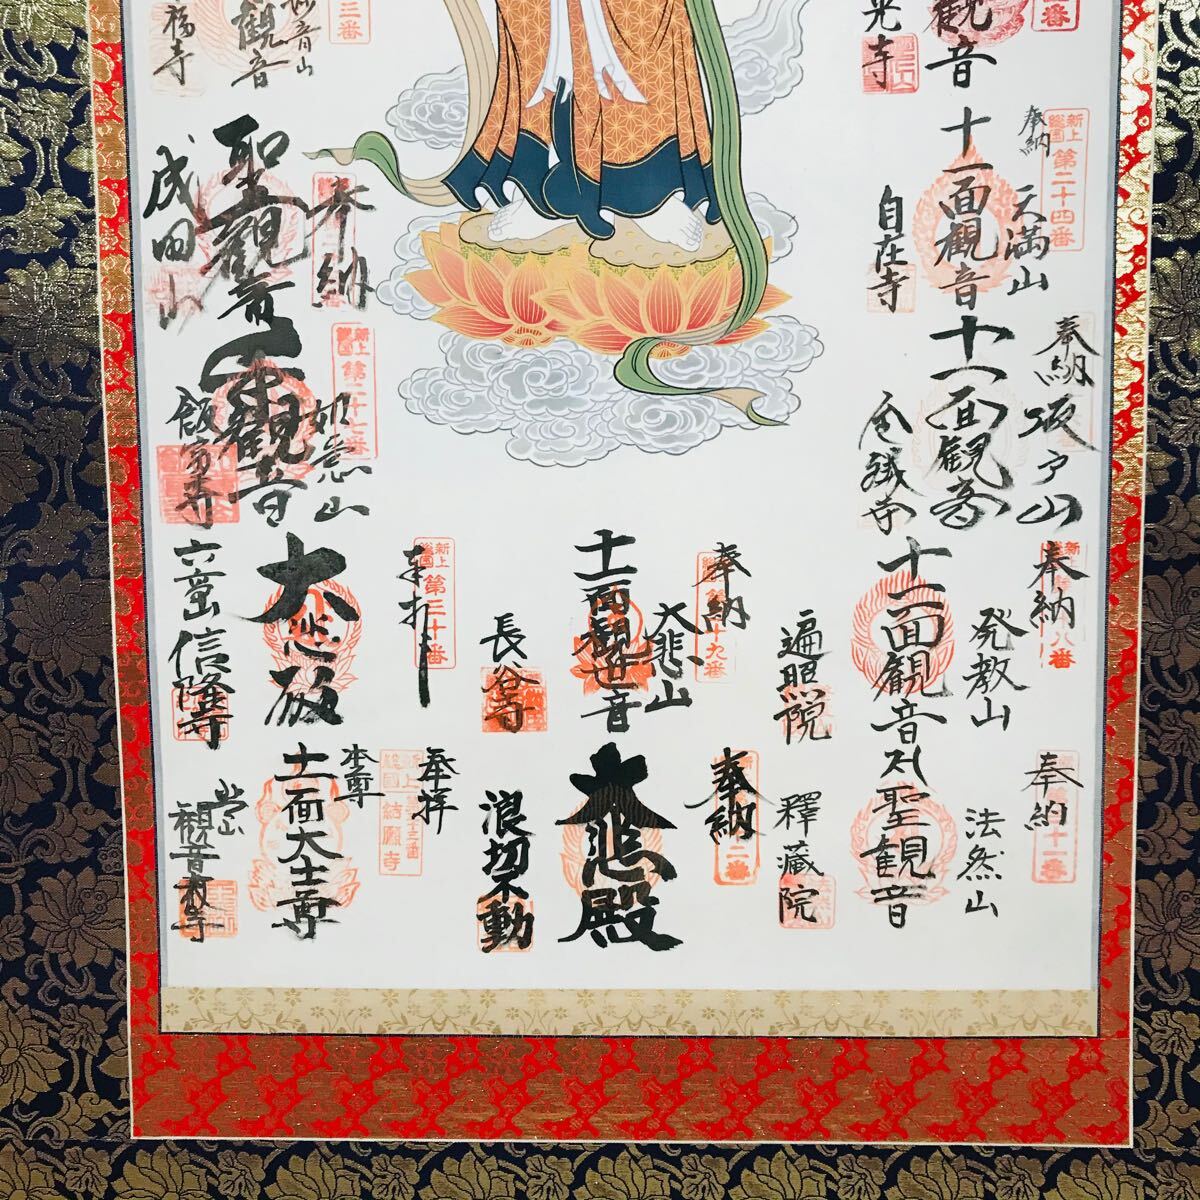 三番
光寺
観音
二番
福寺
観音
妙音山
奉納
新上
総国
第二十四番
十一面観音
天満山
自在寺
奉納
聖観音
成田山
奉納
坂戸山
十一面観音
新上
総国
第二十七番
如意山
千手観音
飯富寺
奉納
八番
発教山
十一面観音
遍照院
奉納
十九番
大悲山
十一面観世音
長谷寺
奉拝
新上
総国
第三十番
大悲殿
信隆寺
奉納
十一番
法然山
聖観音
釋蔵院
奉納
二番
大悲殿
浪切不動
奉拝
新上
総國
結願寺
本尊
十一面大士尊
観音教寺